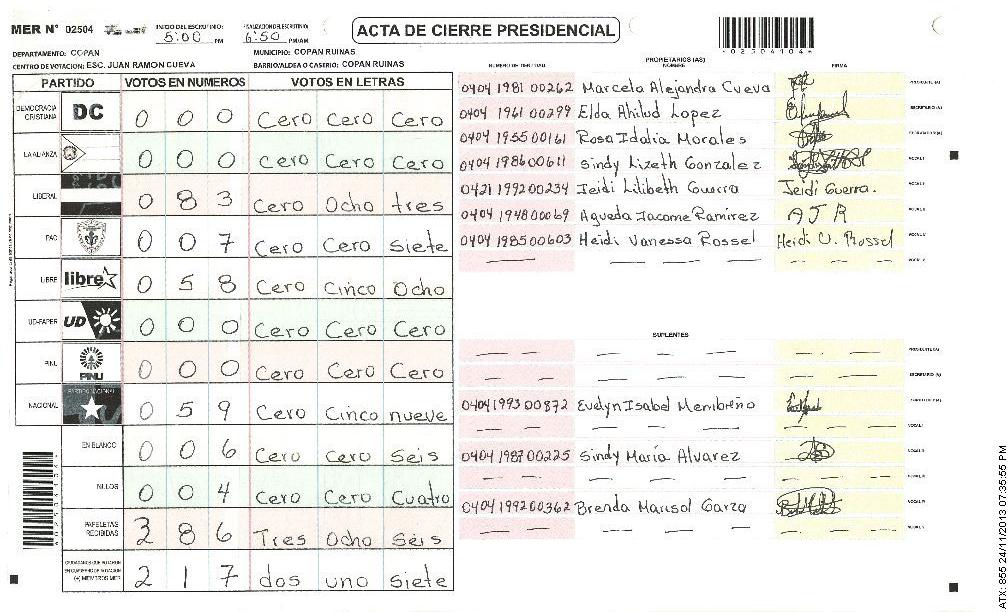 MER N° 02504 INICIO DEL ESCRUTINIO: 5:00 PM FINALIZACION DEL ESCRUTINIO: 6:50 PM/AM
ACTA DE CIERRE PRESIDENCIAL
DEPARTAMENTO: COPAN MUNICIPIO: COPAN RUINAS
CENTRO DE VOTACION: ESC. JUAN RAMON CUEVA BARRIO/ALDEA O CASERIO: COPAN RUINAS
PARTIDO VOTOS EN NUMEROS VOTOS EN LETRAS
DEMOCRACIA CRISTIANA DC 0 0 0 Cero Cero Cero
LA ALIANZA 0 0 0 Cero Cero Cero
LIBERAL 0 8 3 Cero Ocho tres
PAC 0 0 7 Cero Cero Siete
LIBRE libre 0 5 8 Cero Cinco Ocho
UD-FAPER UD 0 0 0 Cero Cero Cero
PINU PINU 0 0 0 Cero Cero Cero
NACIONAL PARTIDO NACIONAL 0 5 9 Cero Cinco nueve
EN BLANCO 0 0 6 Cero Cero Seis
NULOS 0 0 4 Cero Cero Cuatro
PAPELETAS RECIBIDAS 3 8 6 Tres Ocho Seis
CIUDADANOS QUE VOTARON EN CUADERNO DE VOTACION (+) MIEMBROS MER 2 1 7 dos uno Siete
PROPIETARIOS (AS)
NUMERO DE IDENTIDAD NOMBRE FIRMA
0404 1981 00262 Marcela Alejandra Cueva PRESIDENTE (A)
0404 1961 00299 Elda Ahilud Lopez SECRETARIO (A)
0404 1955 00161 Rosa Idalia Morales ESCRUTADOR (A)
0404 1986 00611 Sindy Lizeth Gonzalez VOCAL I
0421 1992 00234 Jeidi Lilibeth Guerra Jeidi Guerra. VOCAL II
0404 1948 00069 Agueda Jacome Ramirez AJR VOCAL III
0404 1985 00603 Heidi Vanessa Rossel Heidi V. Rossel VOCAL IV
VOCAL V
SUPLENTES
PRESIDENTE (A)
SECRETARIO (A)
0404 1993 00872 Evelyn Isabel Membreño ESCRUTADOR (A)
VOCAL I
0404 1987 00225 Sindy María Alvarez VOCAL II
VOCAL III
0404 1992 00362 Brenda Marisol Garza VOCAL IV
VOCAL V
ATX: 855 24/11/2013 07:35:55 PM